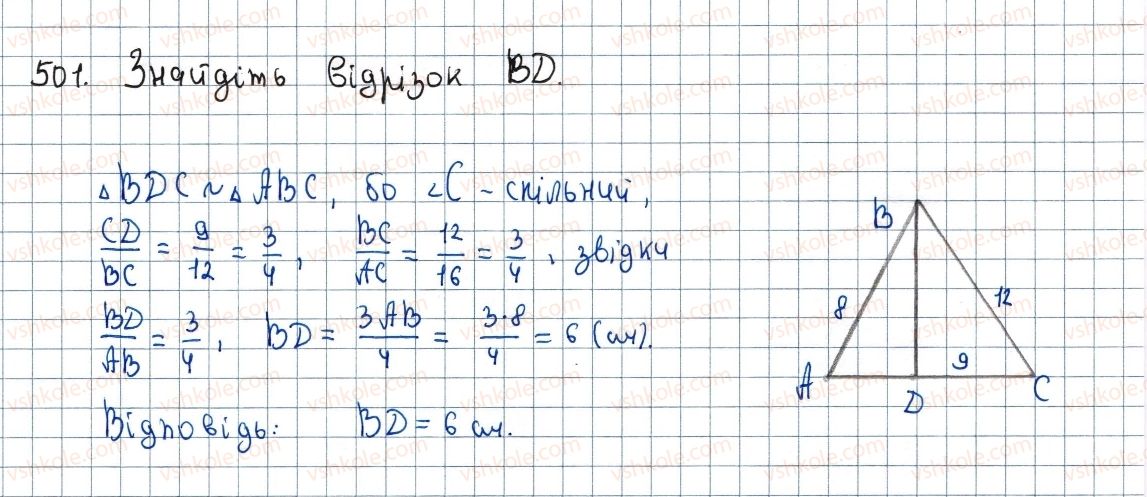 501. Знайдіть відрізок BD.
△BDC ~ △ABC, бо ∠C - спільний,
CD/BC = 9/12 = 3/4, BC/AC = 12/16 = 3/4, звідки
BD/AB = 3/4, BD = 3AB/4 = 3·8/4 = 6 (см).
Відповідь: BD = 6 см.
B
8
12
9
A
D
C
vshkole.com